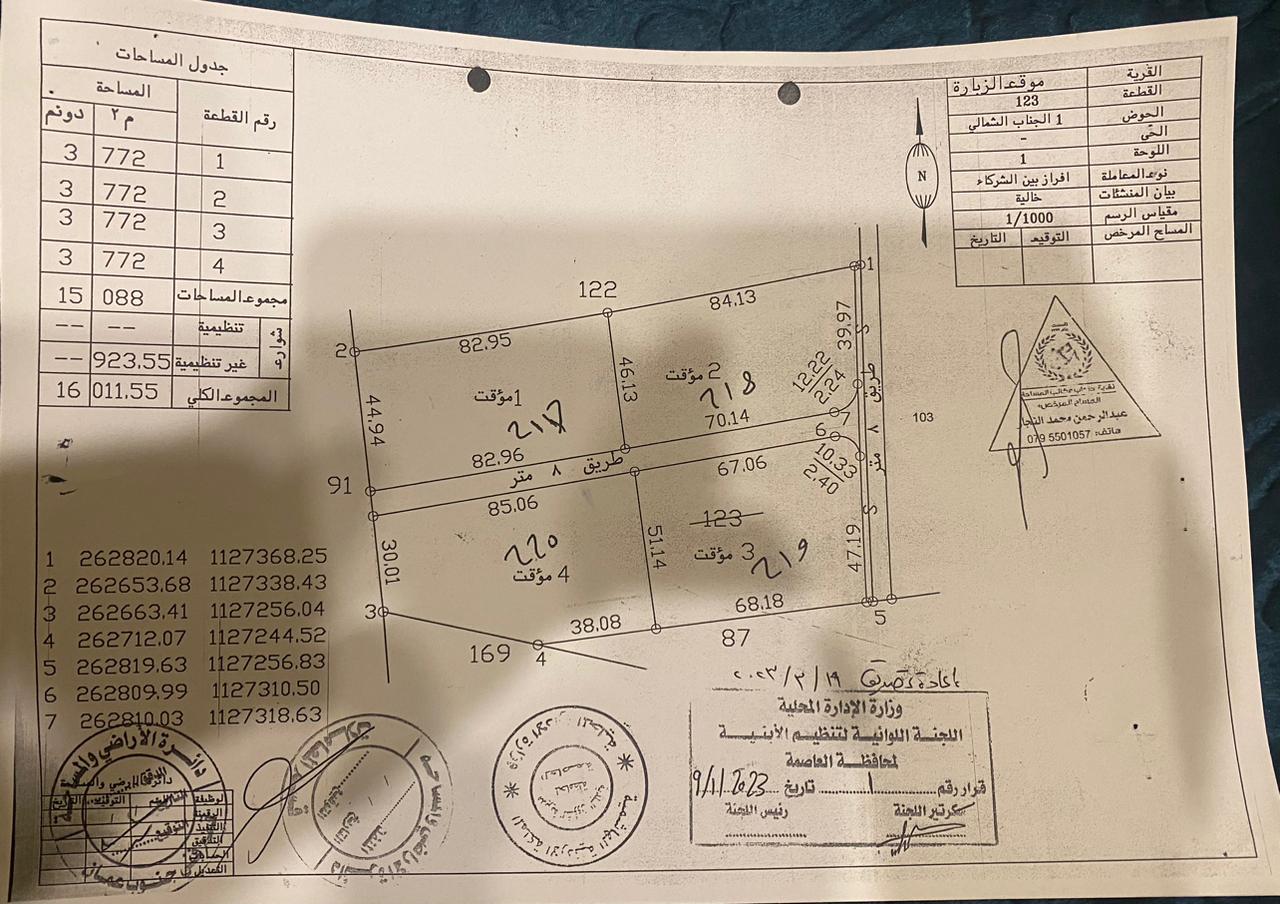 القرية موقع الزبارة
القطعة 123
الحوض 1 الجناب الشمالي
الحي -
اللوحة 1
نوع المعاملة افراز بين الشركاء
بيان المنشئات خالية
مقياس الرسم 1/1000
المساح المرخص التوقيع التاريخ
جدول المساحات
رقم القطعة المساحة
م٢ دونم
1 772 3
2 772 3
3 772 3
4 772 3
مجموع المساحات 088 15
شوارع
تنظيمية -- --
غير تنظيمية 923.55 --
المجموع الكلي 011.55 16
N
122
84.13
1
82.95
2
39.97
S
46.13
مؤقت 2
218
12.22
2.24
مؤقت 1
217
44.94
70.14
7
طريق ٨ متر
103
82.96
طريق ٨ متر
6
67.06
10.33
2.40
91
85.06
123
S
51.14
47.19
مؤقت 3
219
220
مؤقت 4
30.01
3
68.18
5
38.08
87
169
4
عبدالرحمن محمد النجار
هاتف: 5501057 079
1 262820.14 1127368.25
2 262653.68 1127338.43
3 262663.41 1127256.04
4 262712.07 1127244.52
5 262819.63 1127256.83
6 262809.99 1127310.50
7 262810.03 1127318.63
اعادة تصديق ١٩/٣/٢٠٢٣
وزارة الإدارة المحلية
اللجنة اللوائية لتنظيم الأبنية
لمحافظة العاصمة
قرار رقم 1 تاريخ 9/1/2023
سكرتير اللجنة رئيس اللجنة
دائرة الأراضي والمساحة
جنوب عمان
المملكة الاردنية الهاشمية